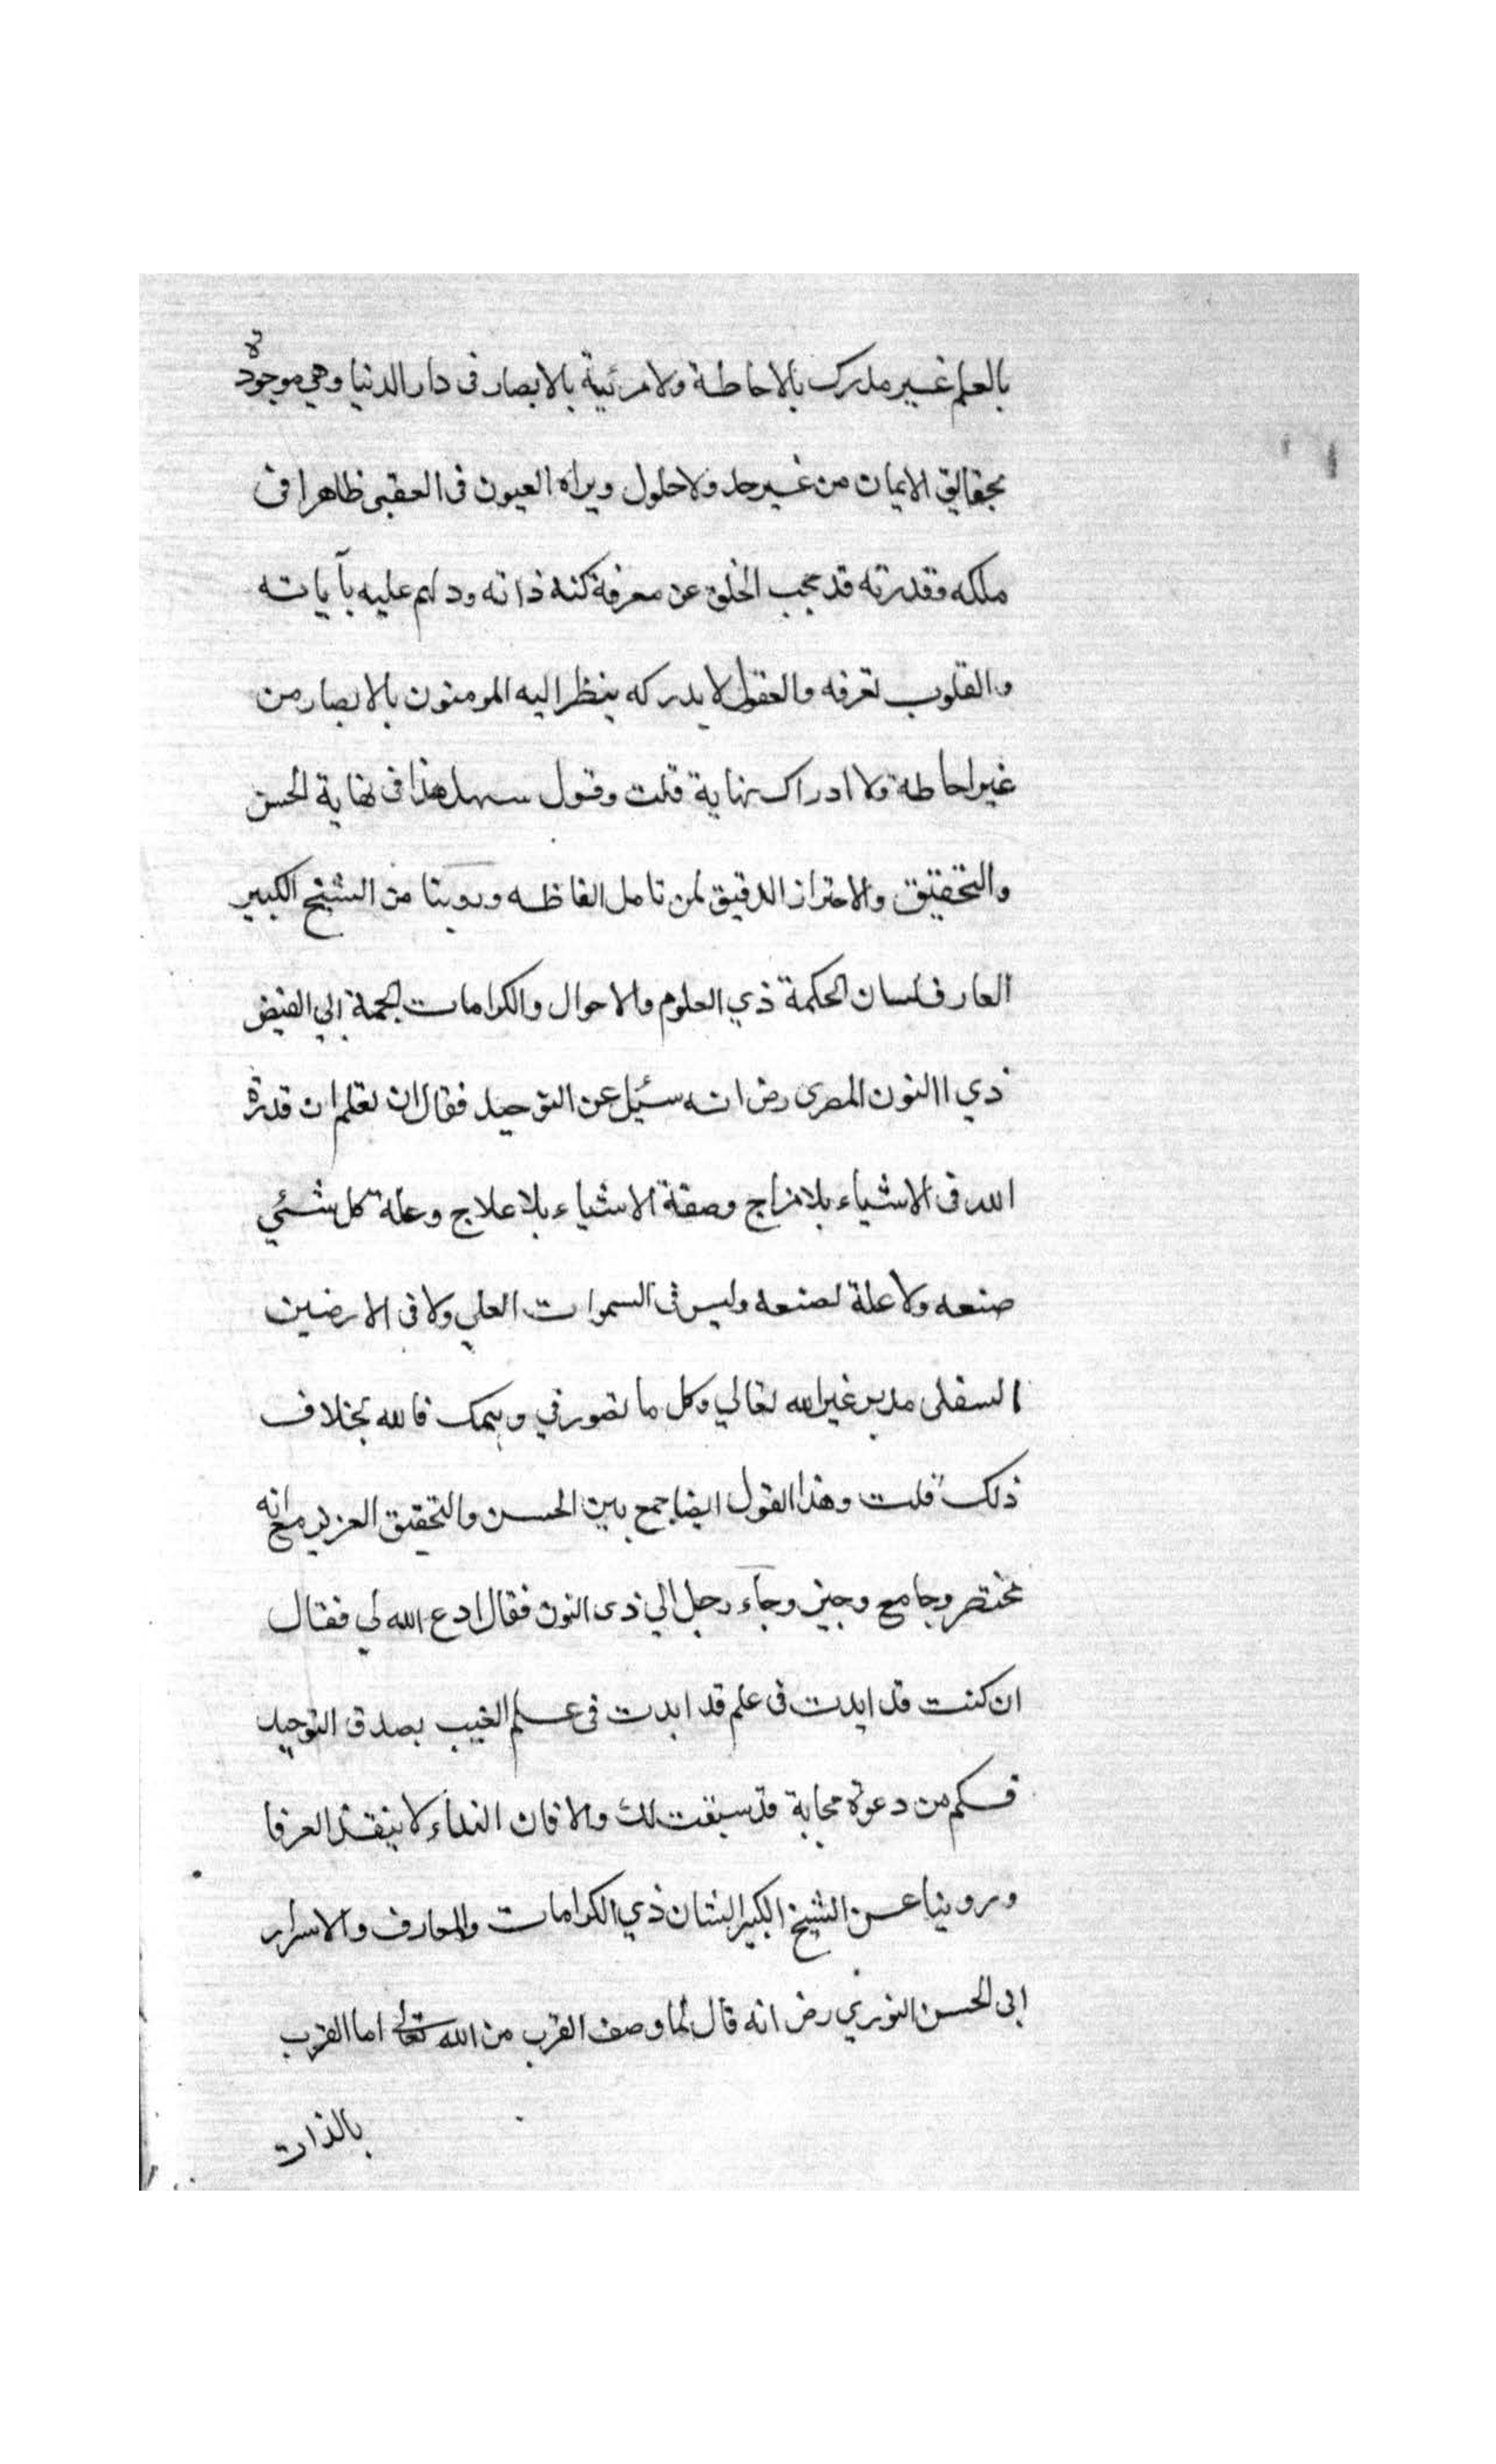 بالعلم غير مدرك بالاحاطة ولا مرئية بالابصار فى دار الدنيا وهي موجودة
بحقايق الايمان من غير حد ولا حلول ويراه العيون فى العقبى ظاهرا فى
ملكه وقدرته قد حجب الخلق عن معرفة كنه ذاته ودلهم عليه بآياته
والقلوب تعرفه والعقول لا يدركه ينظر اليه المومنون بالابصار من
غير احاطة ولا ادراك نهاية قلت وقول سهل هذا فى نهاية الحسن
والتحقيق والاحتراز الدقيق لمن تامل الفاظه وروينا من الشيخ الكبير
العارف لسان الحكمة ذي العلوم والاحوال والكرامات الجمة ابي الفيض
ذي االنون المصرى رض انه سئيل عن التوحيد فقال ان تعلم ان قدرة
الله فى الاشياء بلا مزاج وصفة الاشياء بلا علاج وعلة كل شئي
صنعه ولا علة لصنعه وليس فى السموات العلي ولا فى الارضين
السفلى مدبر غير الله تعالي وكل ما تصور في وهمك فالله بخلاف
ذلك قلت وهذا القول ايضا جمع بين الحسن والتحقيق العزيز مع انه
مختصر وجامع وجيز وجآء رجل الي ذى النون فقال ادع الله لي فقال
ان كنت قد ايدت فى علم قد ايدت فى علم الغيب بصدق التوحيد
فكم من دعوة مجابة قد سبقت لك والا فان النداء لا ينقذ الغرقا
وروينا عن الشيخ الكبير الشان ذي الكرامات والمعارف والاسرار
ابى الحسن النوري رض انه قال لما وصف القرب من الله تعالى اما القرب
بالذات